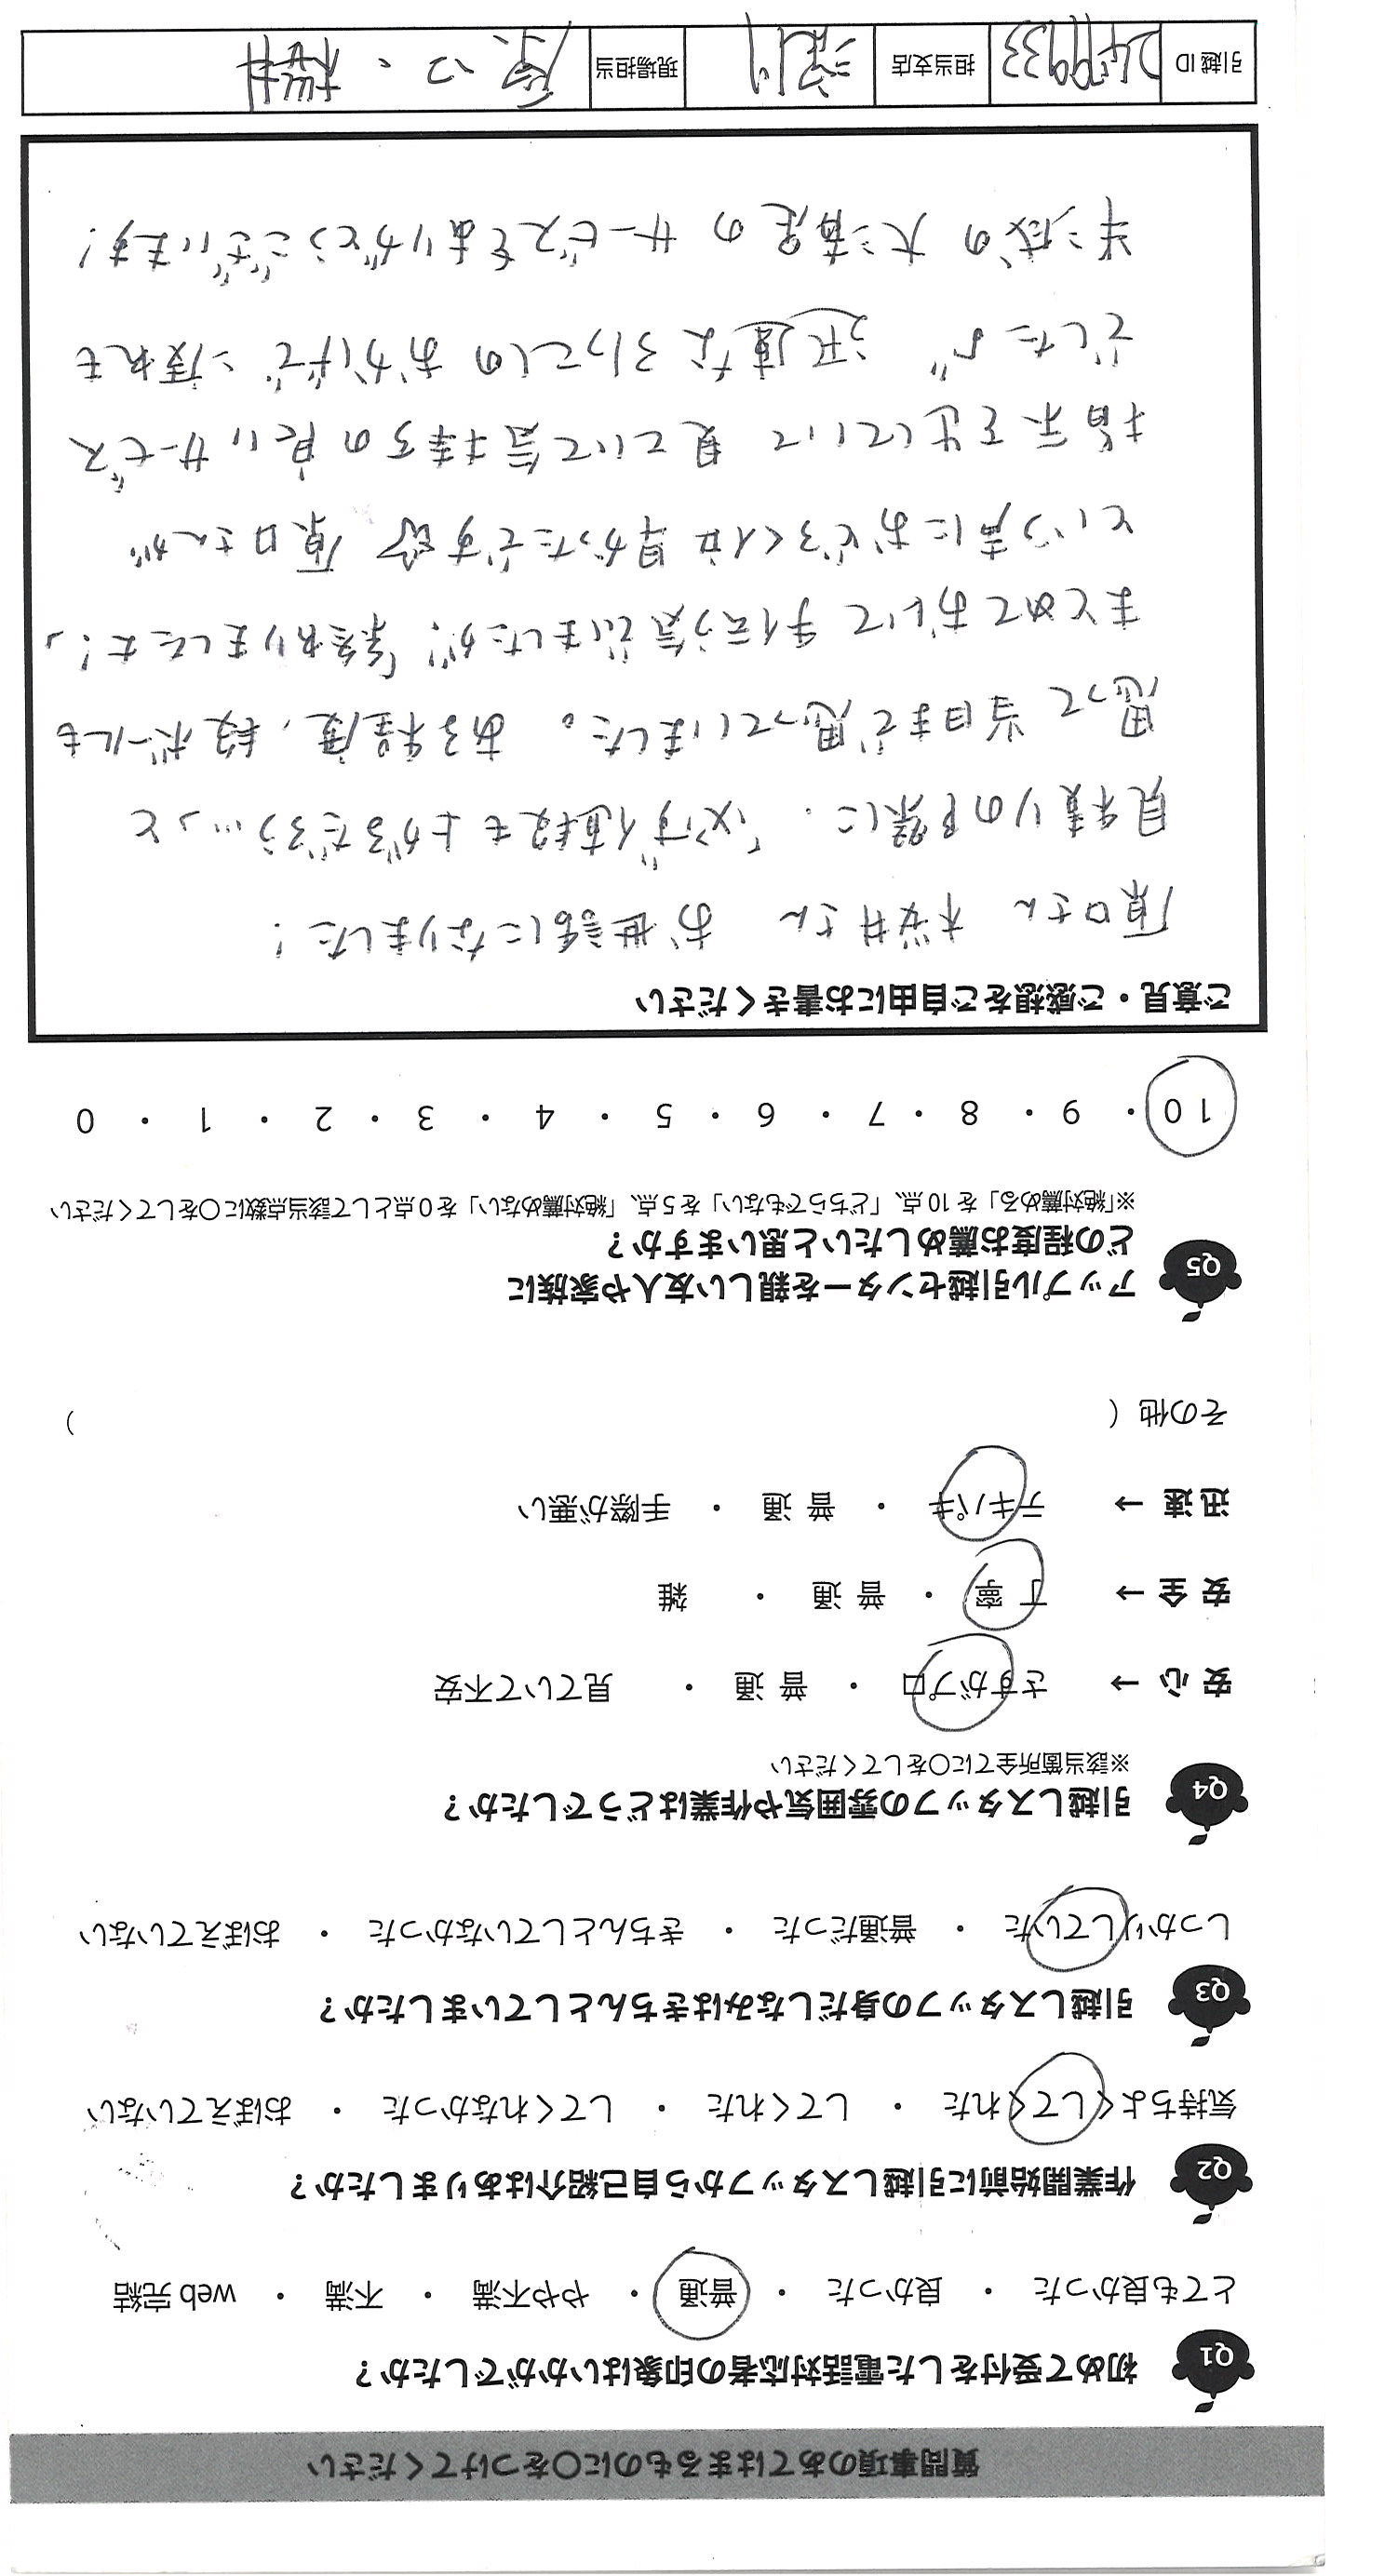 質問事項のあてはまるものに○をつけてください
Q1 初めて受付をした電話対応者の印象はいかがでしたか？
とても良かった ・ 良かった ・ 普通 ・ やや不満 ・ 不満 ・ web 完結
Q2 作業開始前に引越しスタッフから自己紹介はありましたか？
気持ちよくしてくれた ・ してくれた ・ してくれなかった ・ おぼえていない
Q3 引越しスタッフの身だしなみはきちんとしていましたか？
しっかりしていた ・ 普通だった ・ きちんとしていなかった ・ おぼえていない
Q4 引越しスタッフの雰囲気や作業はどうでしたか？
※該当箇所全てに○をしてください
安心 → さすがプロ ・ 普通 ・ 見ていて不安
安全 → 丁寧 ・ 普通 ・ 雑
迅速 → テキパキ ・ 普通 ・ 手際が悪い
その他（ ）
Q5 アップル引越センターを親しい友人や家族に
どの程度お薦めしたいと思いますか？
※「絶対薦める」を 10 点、「どちらでもない」を 5 点、「絶対薦めない」を 0 点として該当点数に○をしてください
10 ・ 9 ・ 8 ・ 7 ・ 6 ・ 5 ・ 4 ・ 3 ・ 2 ・ 1 ・ 0
ご意見・ご感想をご自由にお書きください
原口さん 桜井さん お世話になりました！
見積りの際に、「必ず値段も上がるだろう…」と
思って当日まで思っていました。 ある程度、段ボールも
まとめておいて手伝う気でいましたが、「終わりました！」
という声におどろく位早かったです 原口さんが
指示を出していて 見ていて気持ちの良いサービス
でした 迅速な引っこしのおかげで、疲れも
半減の大満足の サービスをありがとうございます！
引越 ID 2459933 担当支店 現場担当 原口・桜井